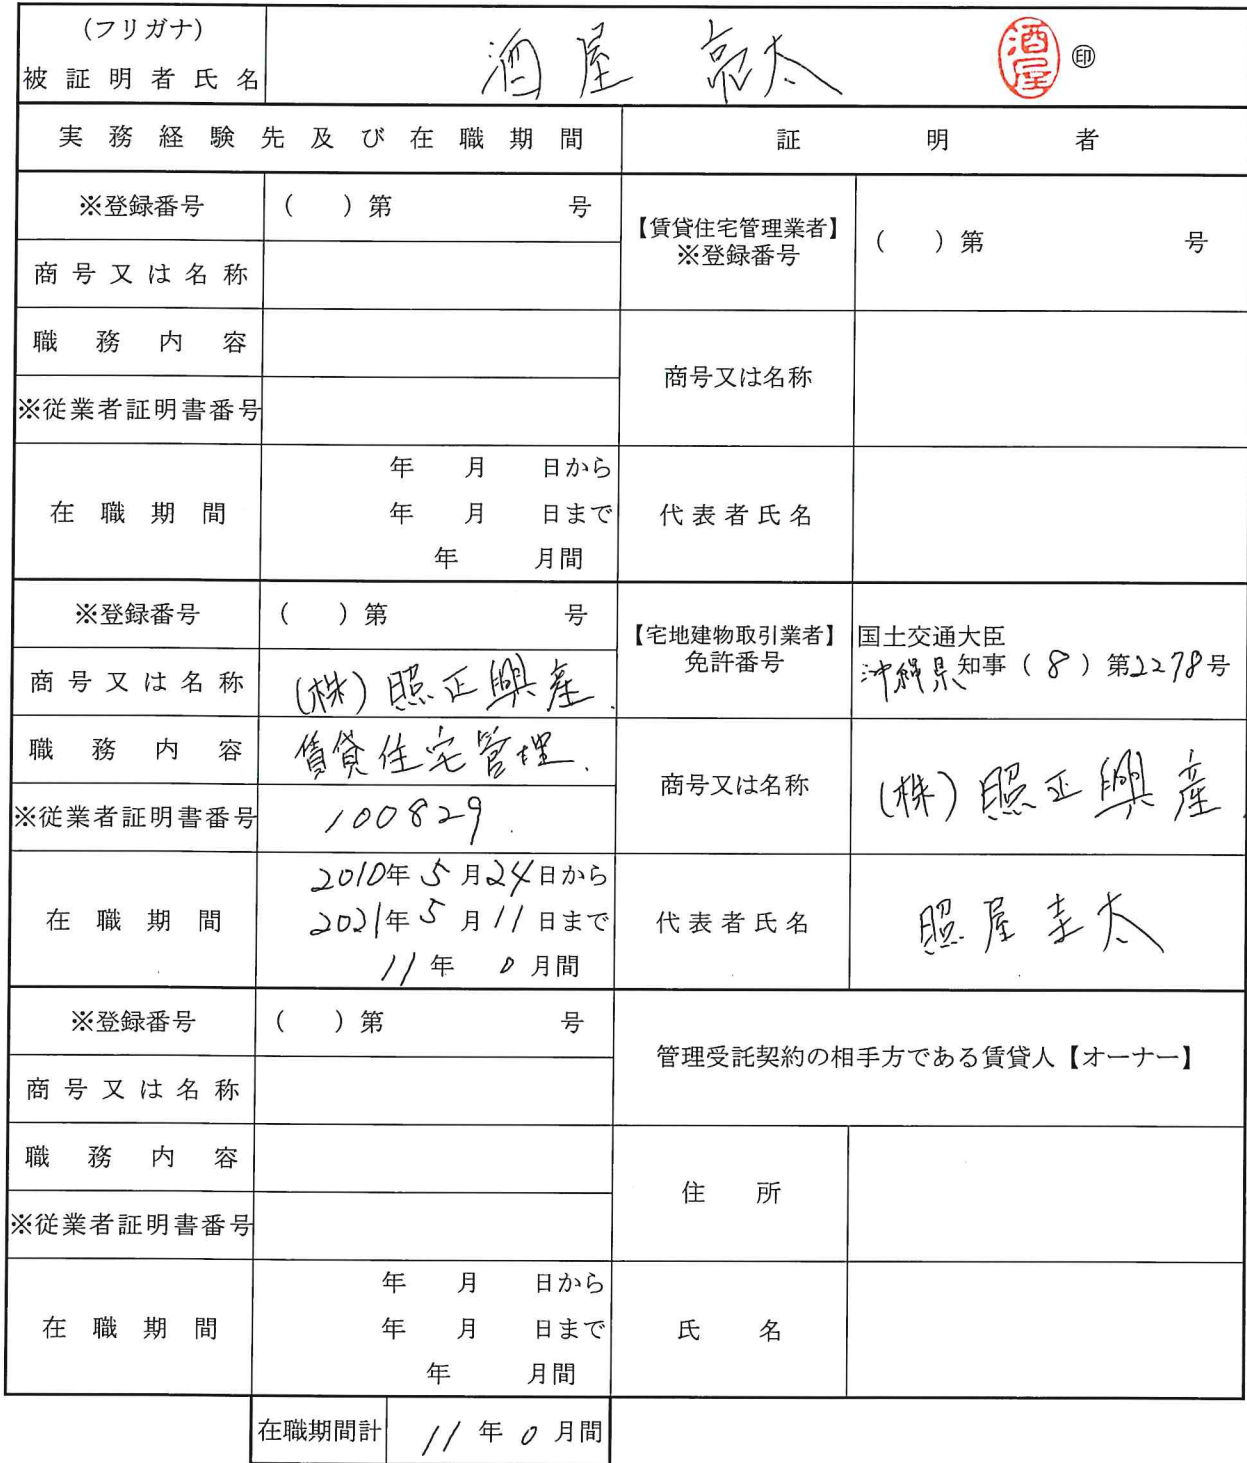 (フリガナ)
被証明者氏名 酒屋 亮太 酒屋 ㊞
実務経験先及び在職期間 証明者
※登録番号 ( ) 第 号
商号又は名称
職務内容
※従業者証明書番号
在職期間 年 月 日から
年 月 日まで
年 月間
【賃貸住宅管理業者】
※登録番号 ( ) 第 号
商号又は名称
代表者氏名
※登録番号 ( ) 第 号
商号又は名称 (株)照正興産.
職務内容 賃貸住宅管理.
※従業者証明書番号 100829.
在職期間 2010年5月24日から
2021年5月11日まで
11年 0月間
【宅地建物取引業者】
免許番号 国土交通大臣
沖縄県知事(8)第2278号
商号又は名称 (株)照正興産.
代表者氏名 照屋圭太
※登録番号 ( ) 第 号
商号又は名称
職務内容
※従業者証明書番号
在職期間 年 月 日から
年 月 日まで
年 月間
管理受託契約の相手方である賃貸人【オーナー】
住所
氏名
在職期間計 11年0月間